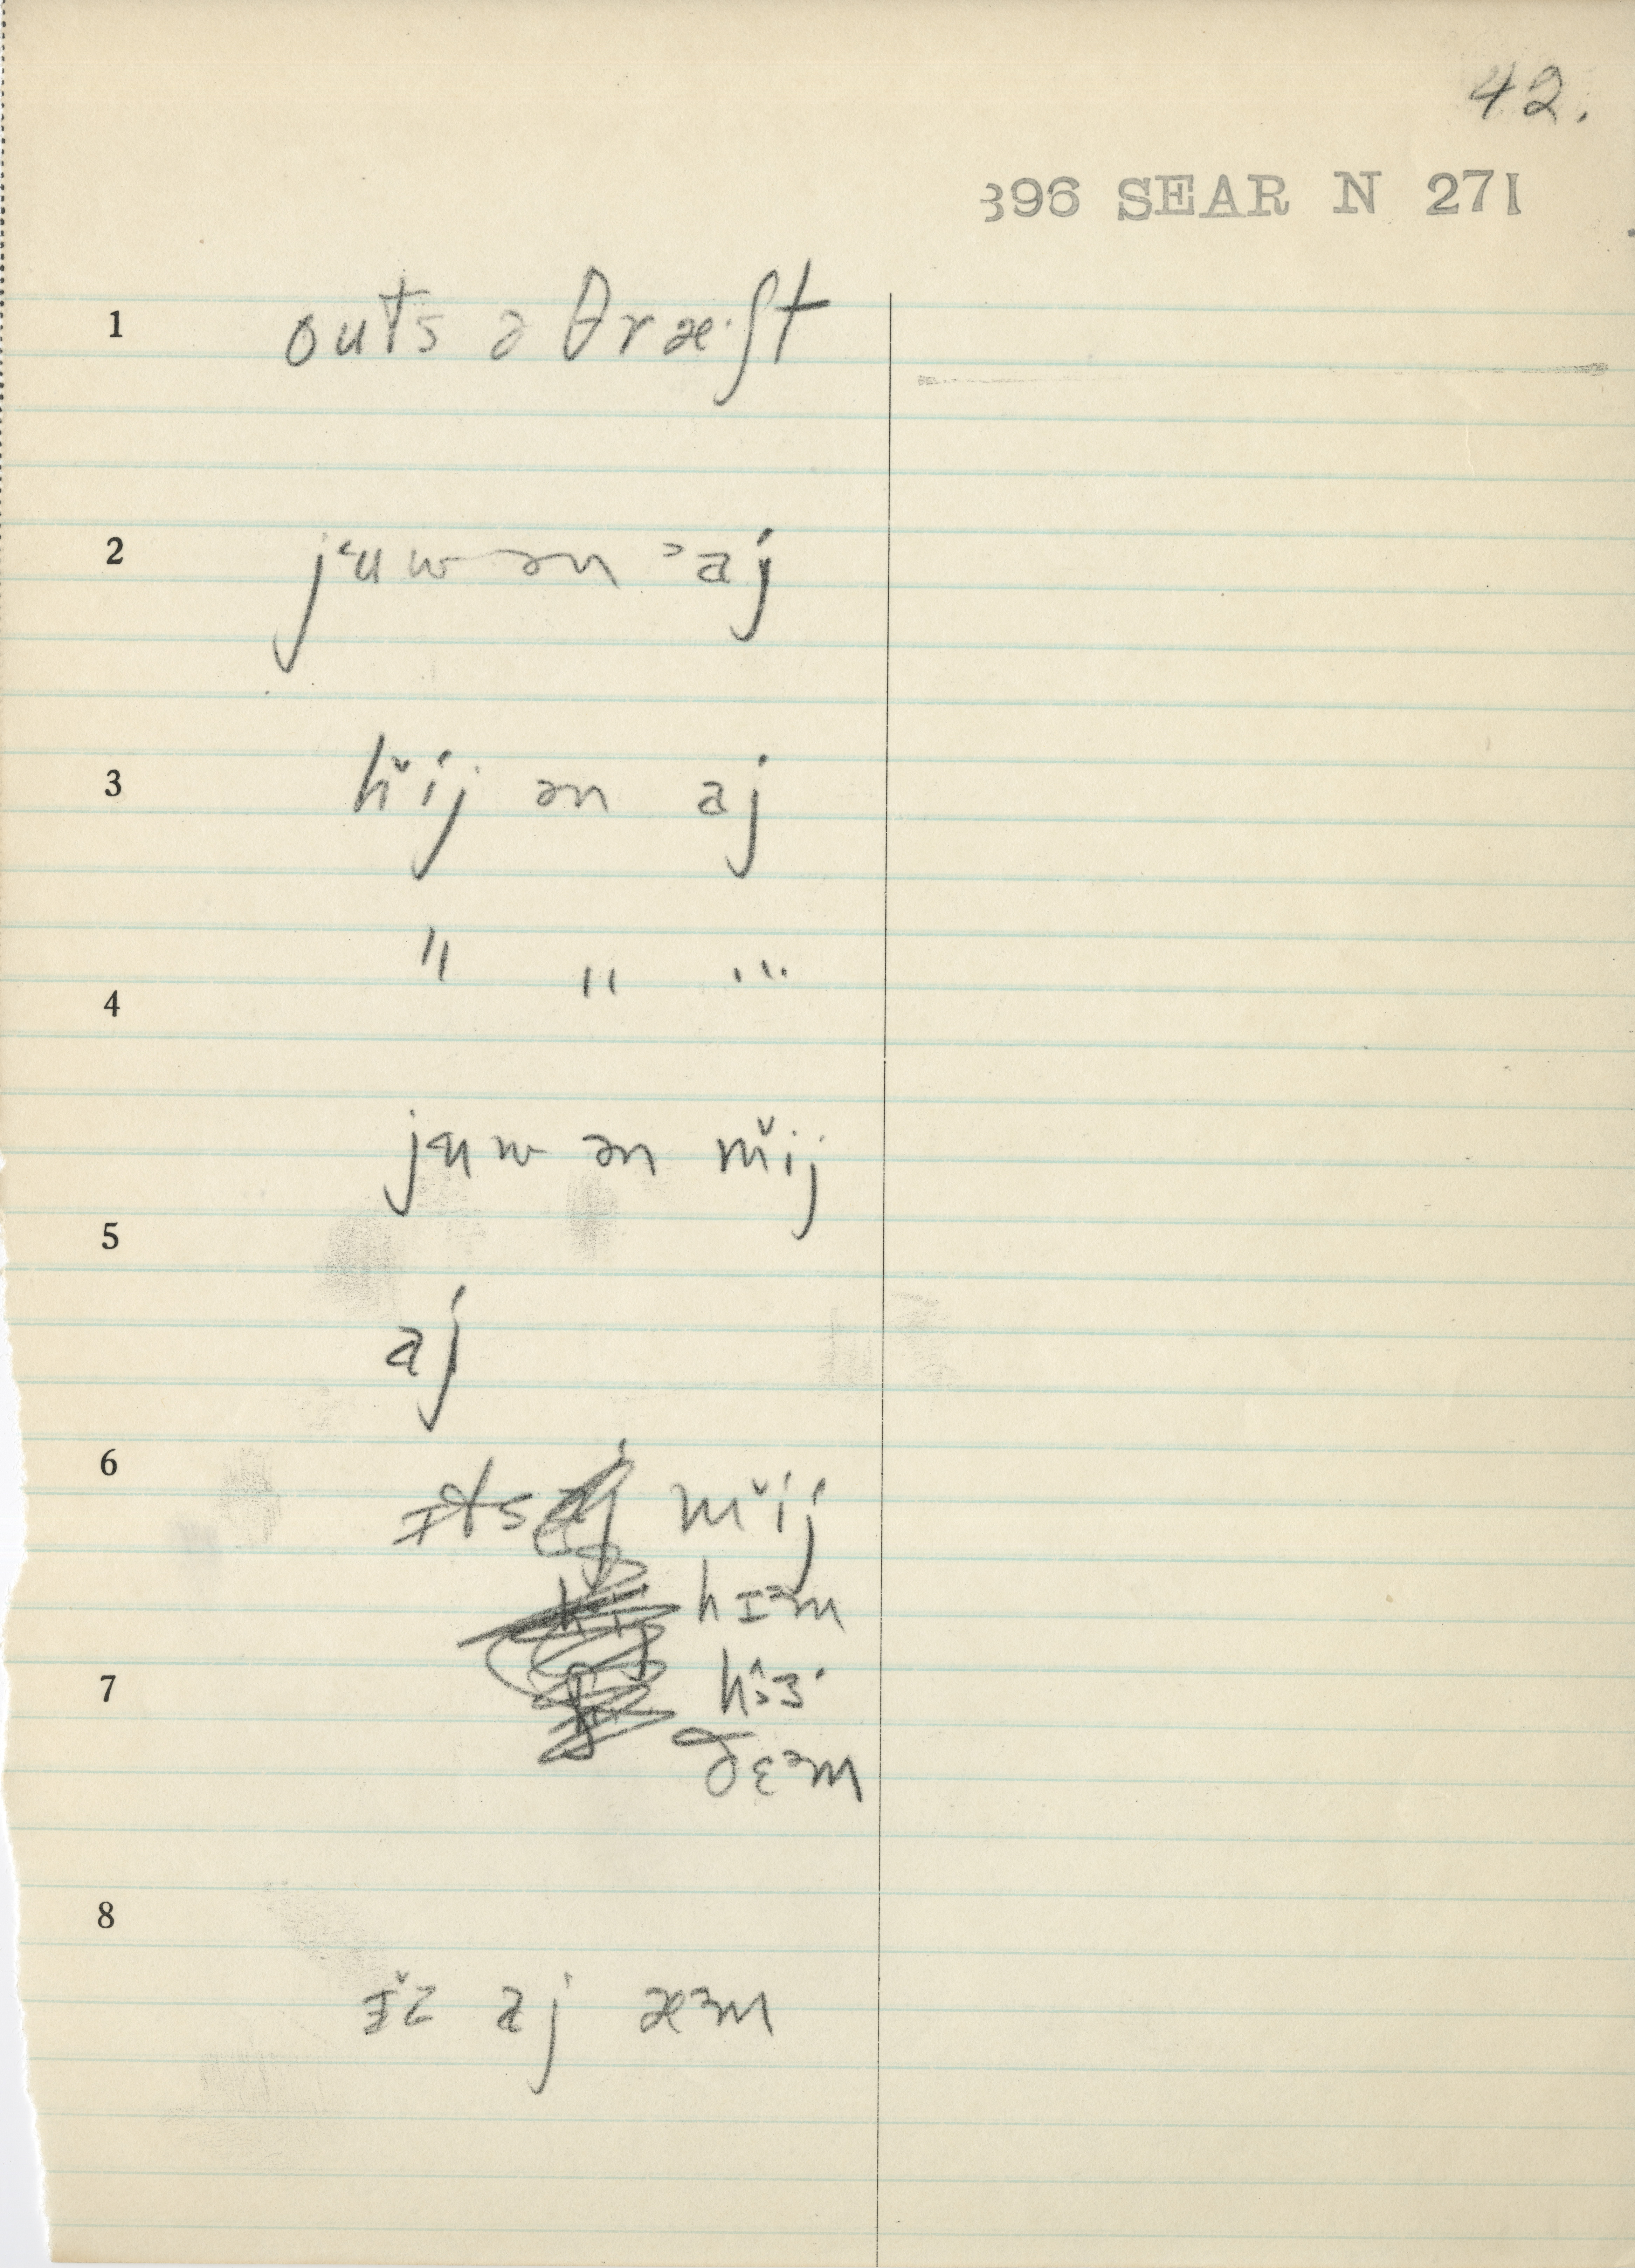 42.
396 SEAR N 271
1 outs ə θræ·ʃt
2 jᵋuw ən ᵓaj
3 hᵛij ən aj
" " "
4
jᵋuw ən mᵛij
5
aj
6 ɪts mᵛij
hɪᵊm
7 hᵊɜ·
ðɛᵊm
8
ɪᵛz aj æᵊm